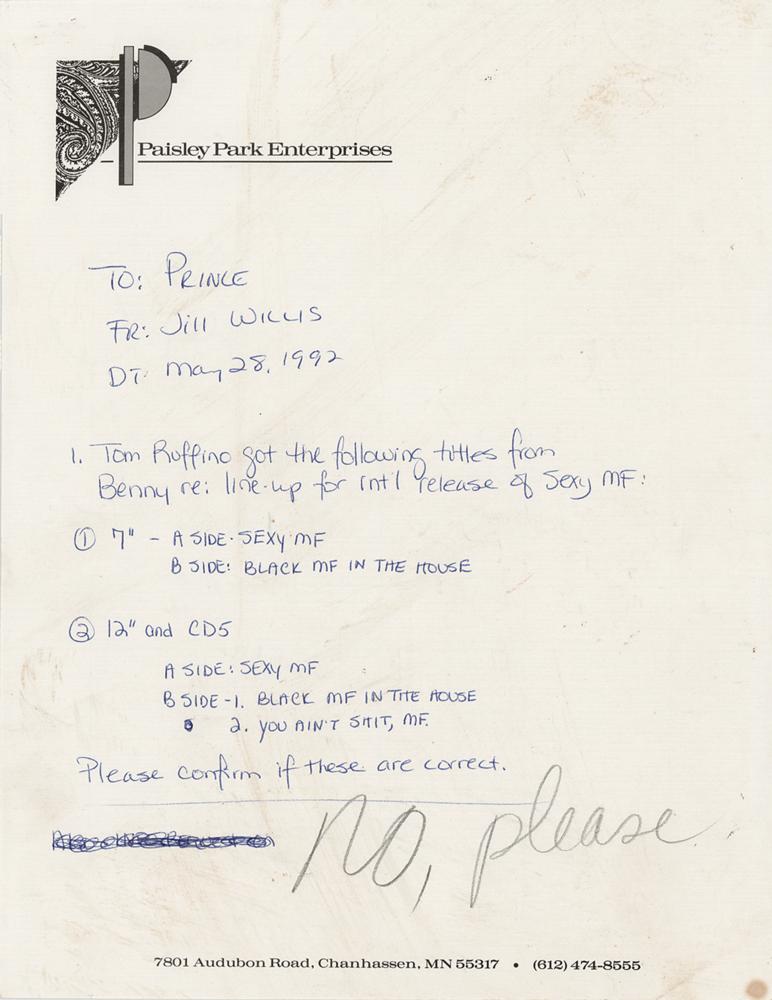 Paisley Park Enterprises
TO: PRINCE
FR: Jill WILLIS
DT: May 28, 1992
1. Tom Ruffino got the following titles from
Benny re: line-up for int'l release of Sexy MF:
① 7" - A SIDE - SEXY MF
B SIDE: BLACK MF IN THE HOUSE
② 12" and CD5
A SIDE: SEXY MF
B SIDE - 1. BLACK MF IN THE HOUSE
2. YOU AIN'T SHIT, MF.
Please confirm if these are correct.
NO, please
7801 Audubon Road, Chanhassen, MN 55317 • (612) 474-8555